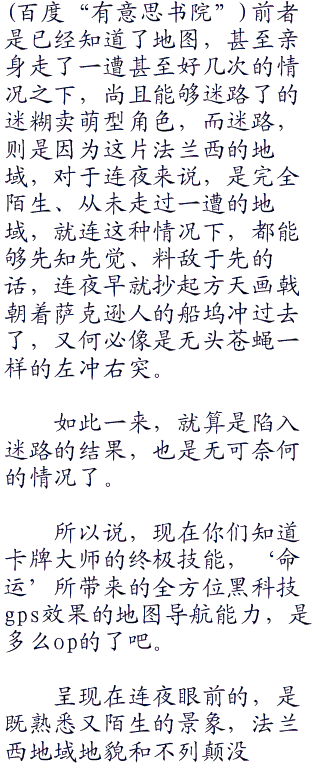 (百度“有意思书院”)前者
是已经知道了地图，甚至亲
身走了一遭甚至好几次的情
况之下，尚且能够迷路了的
迷糊卖萌型角色，而迷路，
则是因为这片法兰西的地
域，对于连夜来说，是完全
陌生、从未走过一遭的地
域，就连这种情况下，都能
够先知先觉、料敌于先的
话，连夜早就抄起方天画戟
朝着萨克逊人的船坞冲过去
了，又何必像是无头苍蝇一
样的左冲右突。
如此一来，就算是陷入
迷路的结果，也是无可奈何
的情况了。
所以说，现在你们知道
卡牌大师的终极技能，‘命
运’所带来的全方位黑科技
gps效果的地图导航能力，是
多么op的了吧。
呈现在连夜眼前的，是
既熟悉又陌生的景象，法兰
西地域地貌和不列颠没